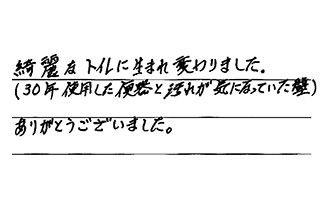 綺麗なトイレに生まれ変わりました.
(30年使用した便器と汚れが気になっていた壁)
ありがとうございました。